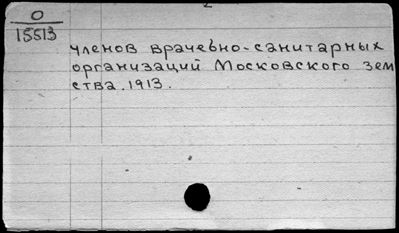 О
15513
членов врачебно-санитарных
организаций Московского зем
ства. 1913.